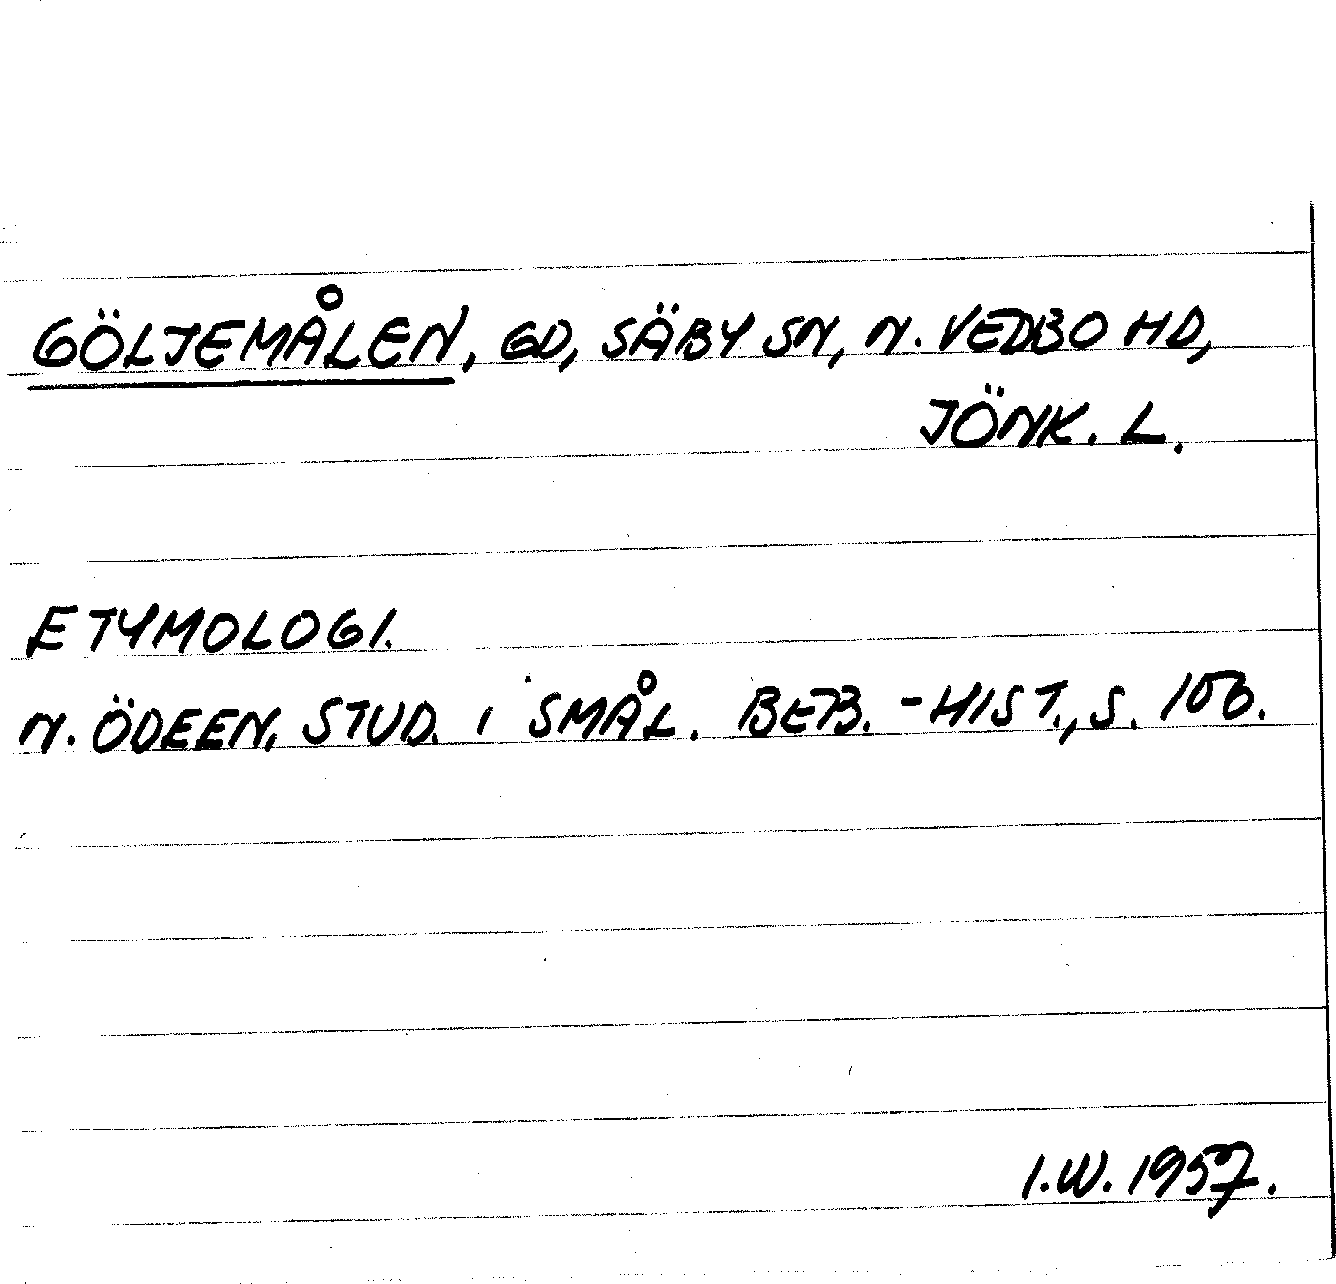 GÖLJEMÅLEN, GD, SÄBY SN, N. VEDBO HD,
JÖNK. L.
ETYMOLOGI.
N. ÖDEEN, STUD. I SMÅL. BEB.-HIST., S.
I.W. 1957.